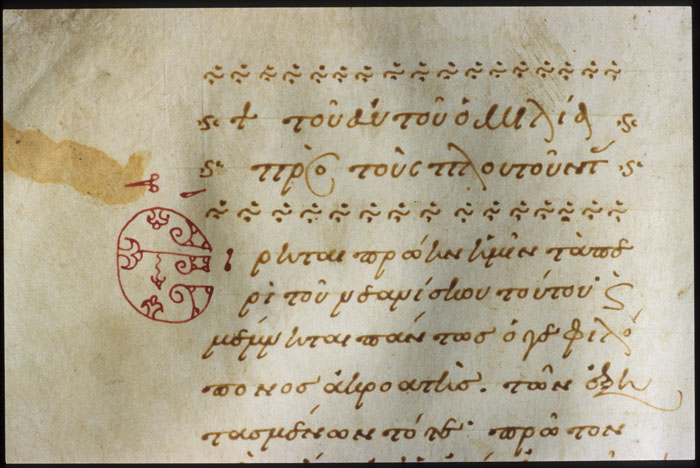 τοῦ αὐτοῦ ὁμιλία
πρὸ τοὺς πλουτοῦντ
Εἴρηται πρώην ἡμῖν τὰ πε
ρὶ τοῦ νεανίσκου τούτου ϗ
μέμνηται πάντως ὅ γε φιλό
πονος ἀκροατὴς. τῶν ἐξη
τασμένων τότε· πρῶτον